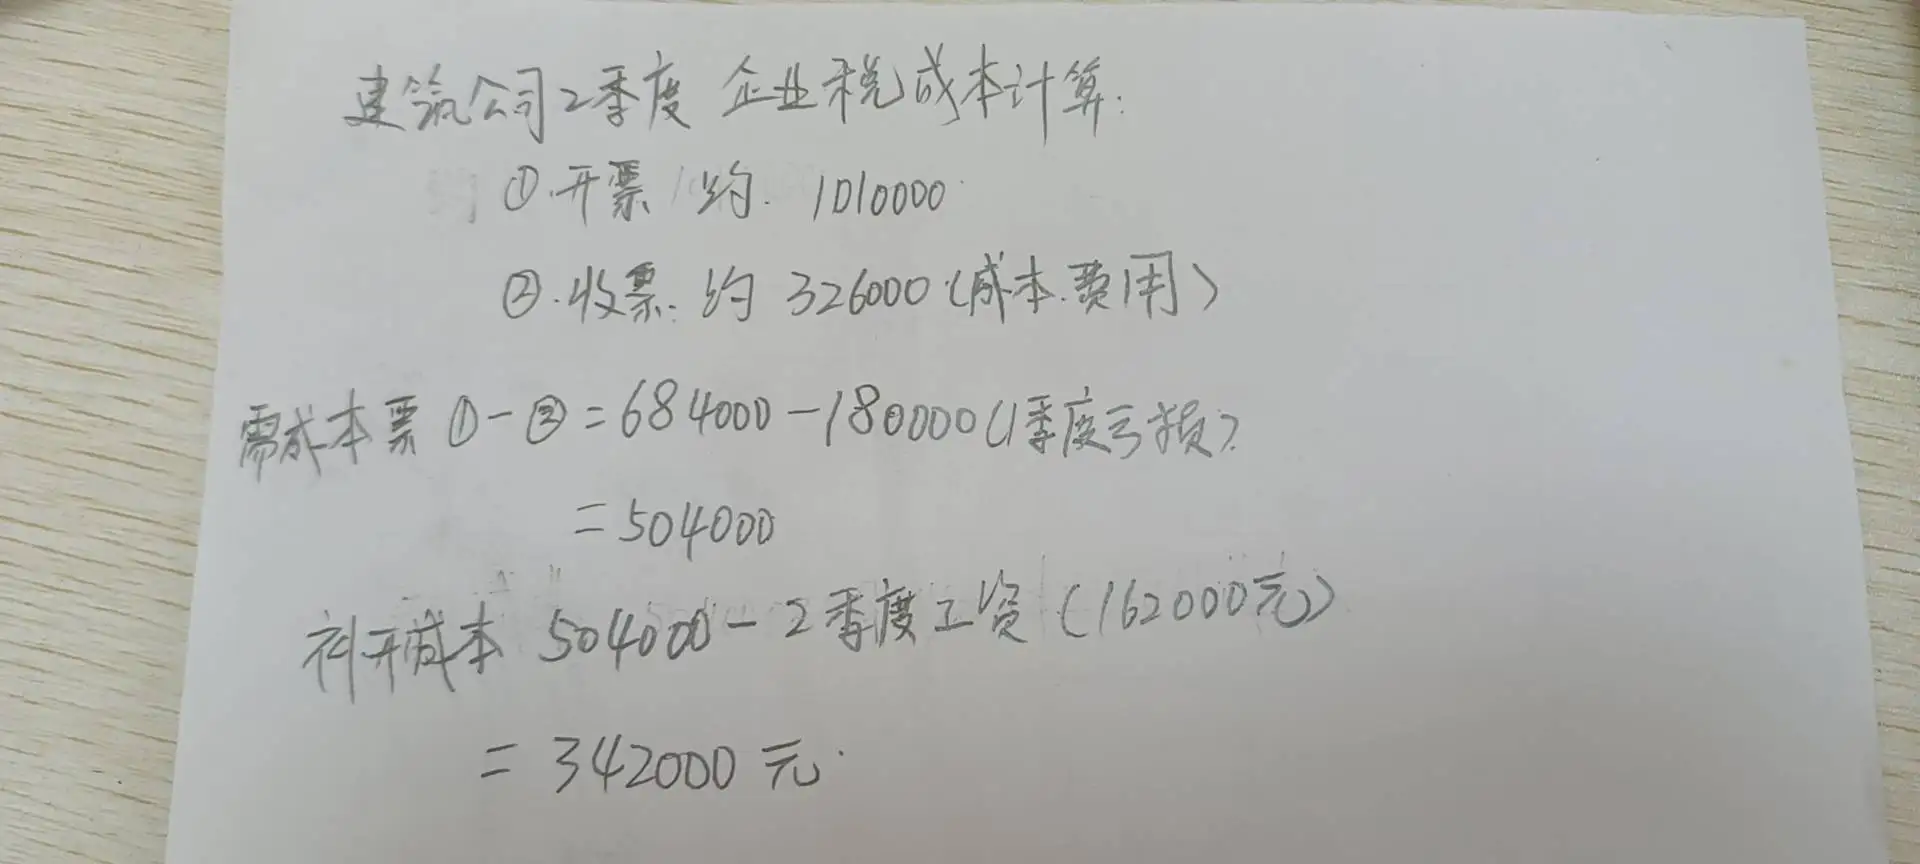 建筑公司2季度 企业税成本计算:
①.开票 约. 1010000
②.收票: 约 326000(成本.费用)
需成本票 ①-②=684000-180000(1季度亏损)
=504000
补开成本 504000-2季度工资(162000元)
=342000元.